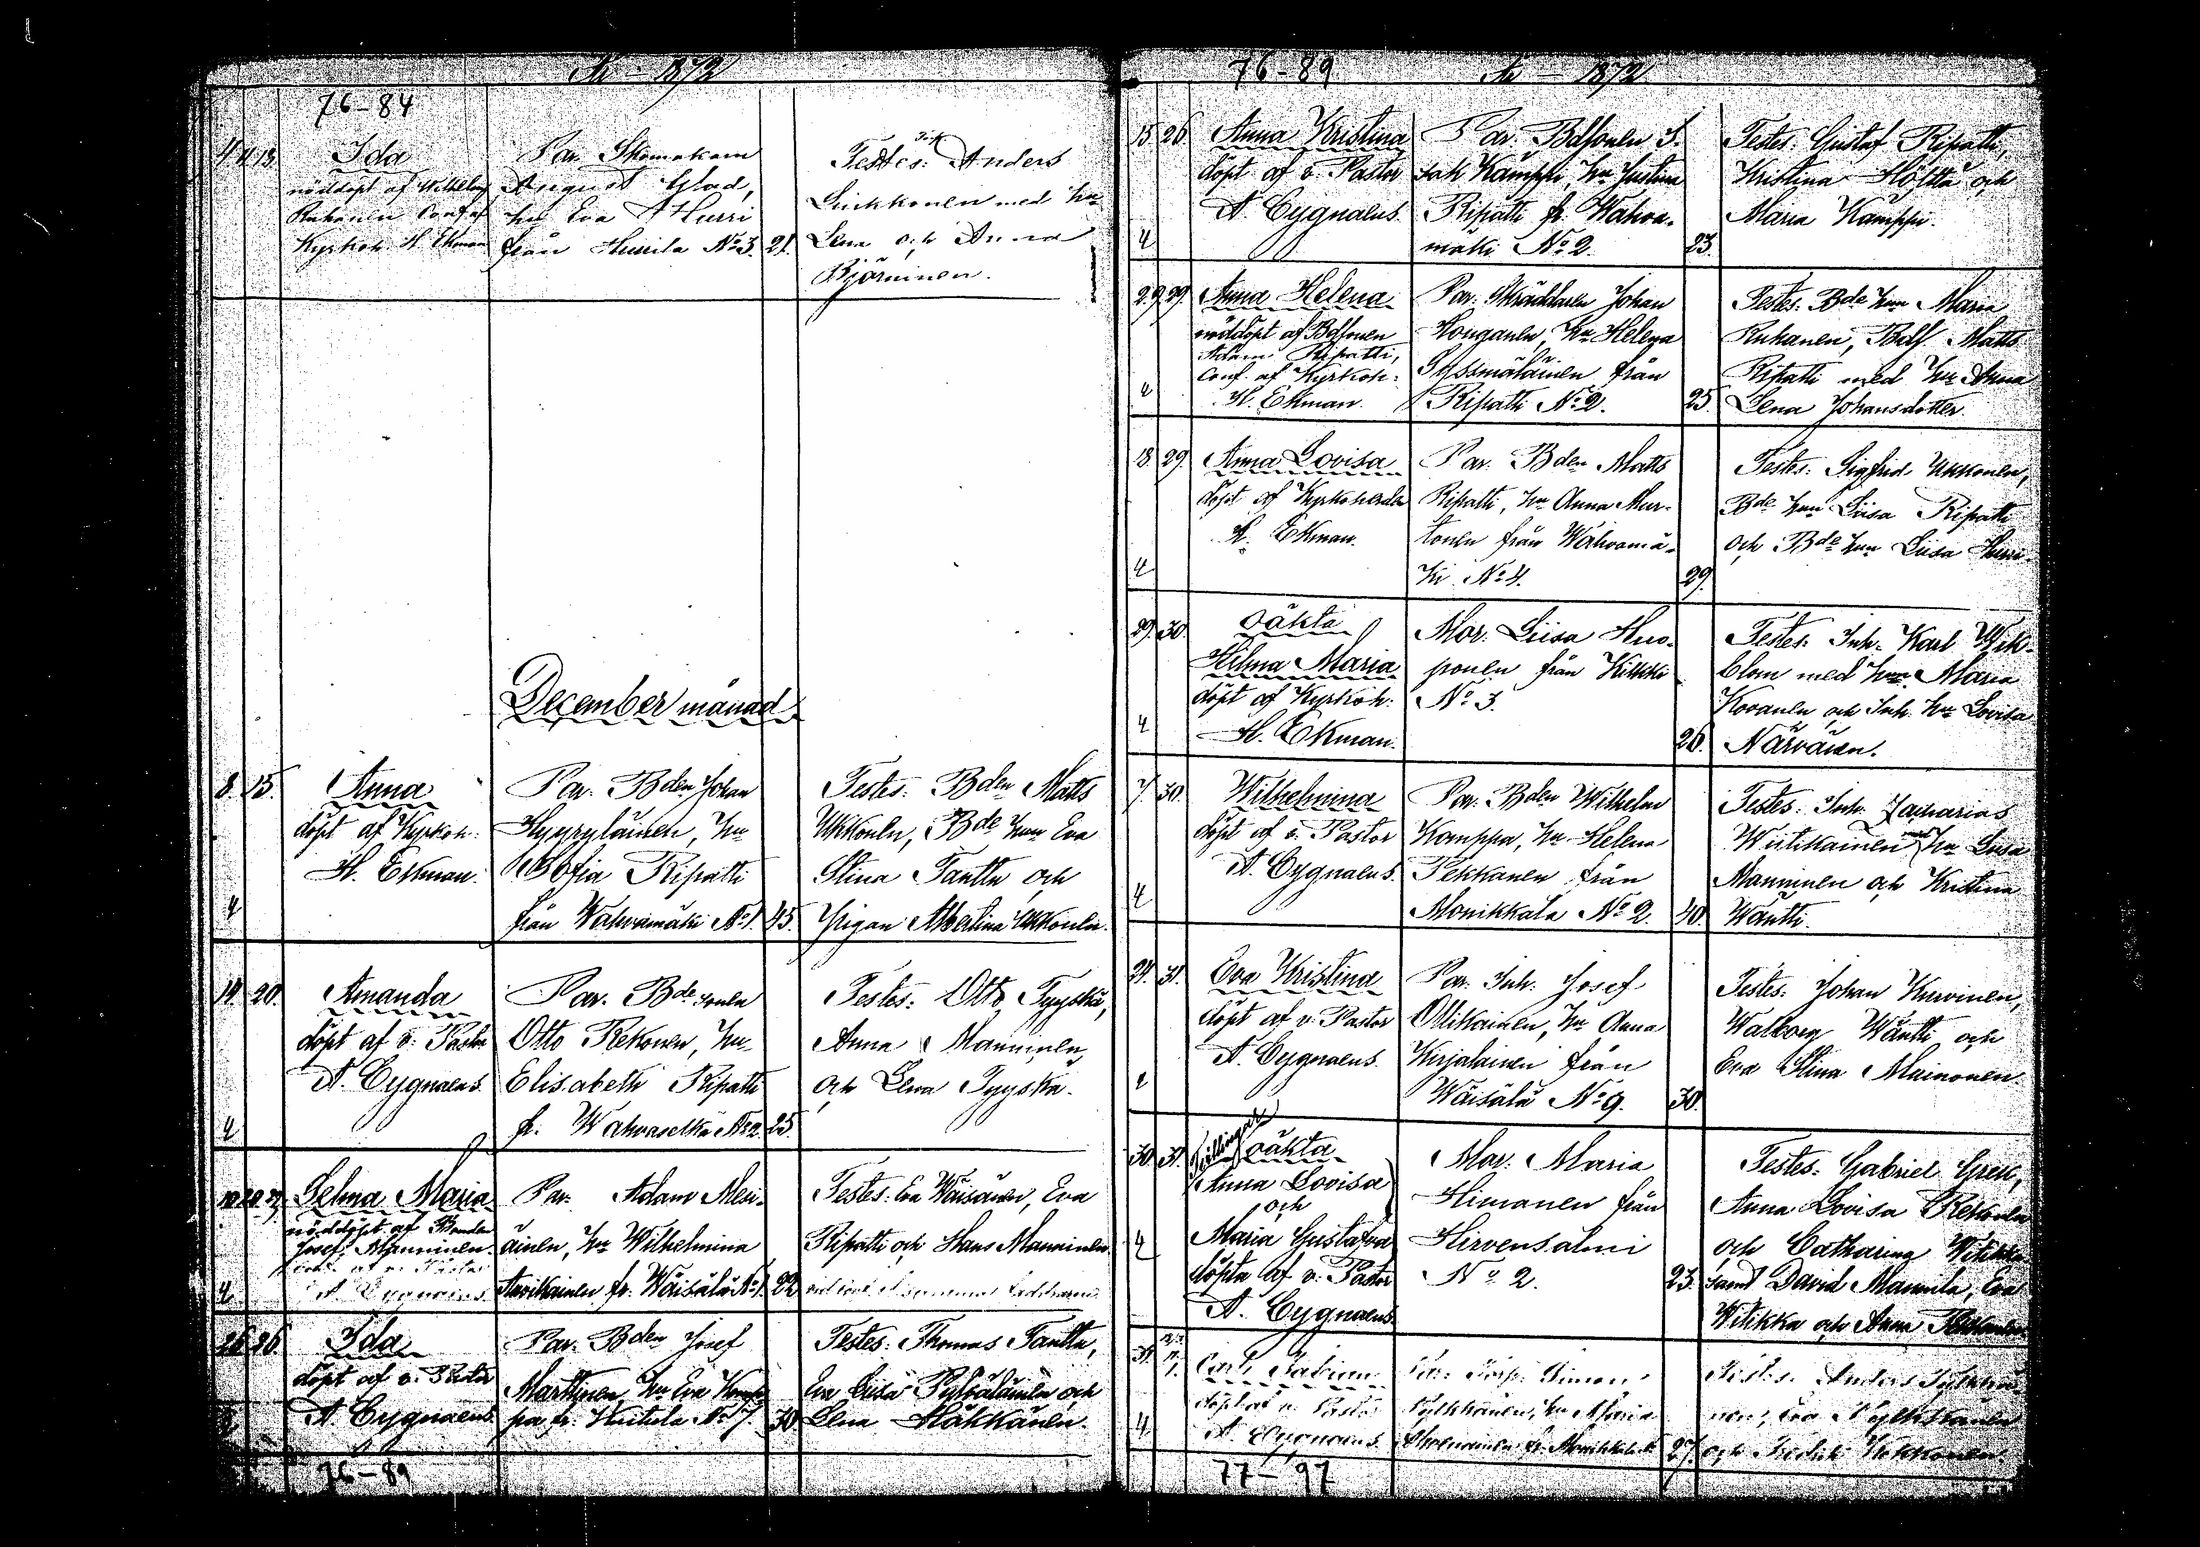 År 1872
76-84
4. 13. Ida
nöddöpt af Wilhelm
Ruhanen Conf. af
Kyrkoh. H. Ekman
Par. Skomakaren
August Glad,
hu Eva Hurri
från Hurrila No 3. 21.
Testes: Anders
Luukkonen med hu
Lena och Anna
Björninen.
December månad
8. 15. Anna
döpt af Kyrkoh.
H. Ekman.
4
Par. Bden Johan
Hyyryläinen, hu
Sofia Ripatti
från Wahvamäki No 1. 45.
Testes: Bden Matts
Ukkonen, Bde hun Eva
Stina Tanttu och
Pigan Albertina Ukkonen.
14. 20. Amanda
döpt af v. Pastor
A. Cygnaeus.
4
Par. Bde sonen
Otto Rekonen, hu
Elisabeth Ripatti
fr. Wahvaselkä No 2. 25.
Testes: Otto Tyyskä,
Anna Manninen
och Lena Tyyskä.
Selma Maria
nöddöpt af Bonden
Josef Manninen
A. Cygnaeus.
4
Par. Adam Meri-
äinen, hu Wilhelmina
fr. Wäisälä No 1. 22
Testes: Eva Wäisänen, Eva
Ripatti och Hans Manninen
26. 26. Ida
döpt af v. Pastor
A. Cygnaeus.
Par. Bden Josef
Marttinen, hu Eva Kamp-
pa fr. No 7. 30.
Testes: Thomas Tanttu,
Eva Liisa Pylväläinen och
Lena Häkkänen.
76-89
76-89
År 1872
15. 26. Anna Kristina
döpt af v. Pastor
A. Cygnaeus.
4
Par. Bdsonen I-
sak Kämppi, hu Justina
Ripatti fr. Wahva-
mäki No 2. 23.
Testes: Gustaf Ripatti,
Kristina Höltta och
Maria Kämppi.
29. 29. Anna Helena
nöddöpt af Bdsonen
Adam Ripatti,
Conf. af Kyrkoh.
H. Ekman.
4
Par. Skräddaren Johan
Honganen, hu Helena
Syssmäläinen från
Ripatti No 2. 25.
Testes: Bde hun Maria
Ruhanen, Bds. Matts
Ripatti med hu Anna
Lena Johansdotter.
18. 29. Anna Lovisa
döpt af Kyrkoherden
H. Ekman.
4
Par. Bden Matts
Ripatti, hu Anna Mur-
tonen från Wahvamä-
ki No 4. 29.
Testes: Sigfrid Ukkonen,
Bde hun Liisa Ripatti
och Bde hun Liisa Hurri.
29. 30. oäkta
Hilma Maria
döpt af Kyrkoh.
H. Ekman.
4
Mor. Liisa Huo-
ponen från Kilkki
No 3.
26.
Testes: Inh. Karl Wik-
blom med hun Maria
Kovanen och Inh. hu Lovisa
Närväinen.
7. 30. Wilhelmina
döpt af v. Pastor
A. Cygnaeus.
4
Par. Bden Wilhelm
Kamppa, hu Helena
Pekkanen från
Monikkala No 2. 40.
Testes: Inh. Zacharias
Wiitikainen med hu Liisa
Manninen och Kristina
Wäntti.
24. 31. Eva Kristina
döpt af v. Pastor
A. Cygnaeus.
Par. Inh. Josef
Ollikainen, hu Anna
Karjalainen från
Wäisälä No 9. 30.
Testes: Johan Kurvinen,
Walborg Wäntti och
Eva Stina Mainonen.
30. 31. Tvillingarne oäkta
Anna Lovisa
och
Maria Gustafva
döpta af v. Pastor
A. Cygnaeus
4
Mor. Maria
Himanen från
Hirvensalmi
No 2. 23.
Testes: Gabriel Grek,
Anna Lovisa Rekonen
och Catharina Witikka
samt David Mannila, Eva
Witikka och Anna
31. Carl Fabian
döpt af v. Pastor
A. Cygnaeus.
4
Par. Torp. Simon
Pylkkänen, hu Maria
fr. Monikkala 27.
Testes: Anders Pylkkä-
nen, Eva Pylkkänen
och Fredrik Kekkonen.
77-97